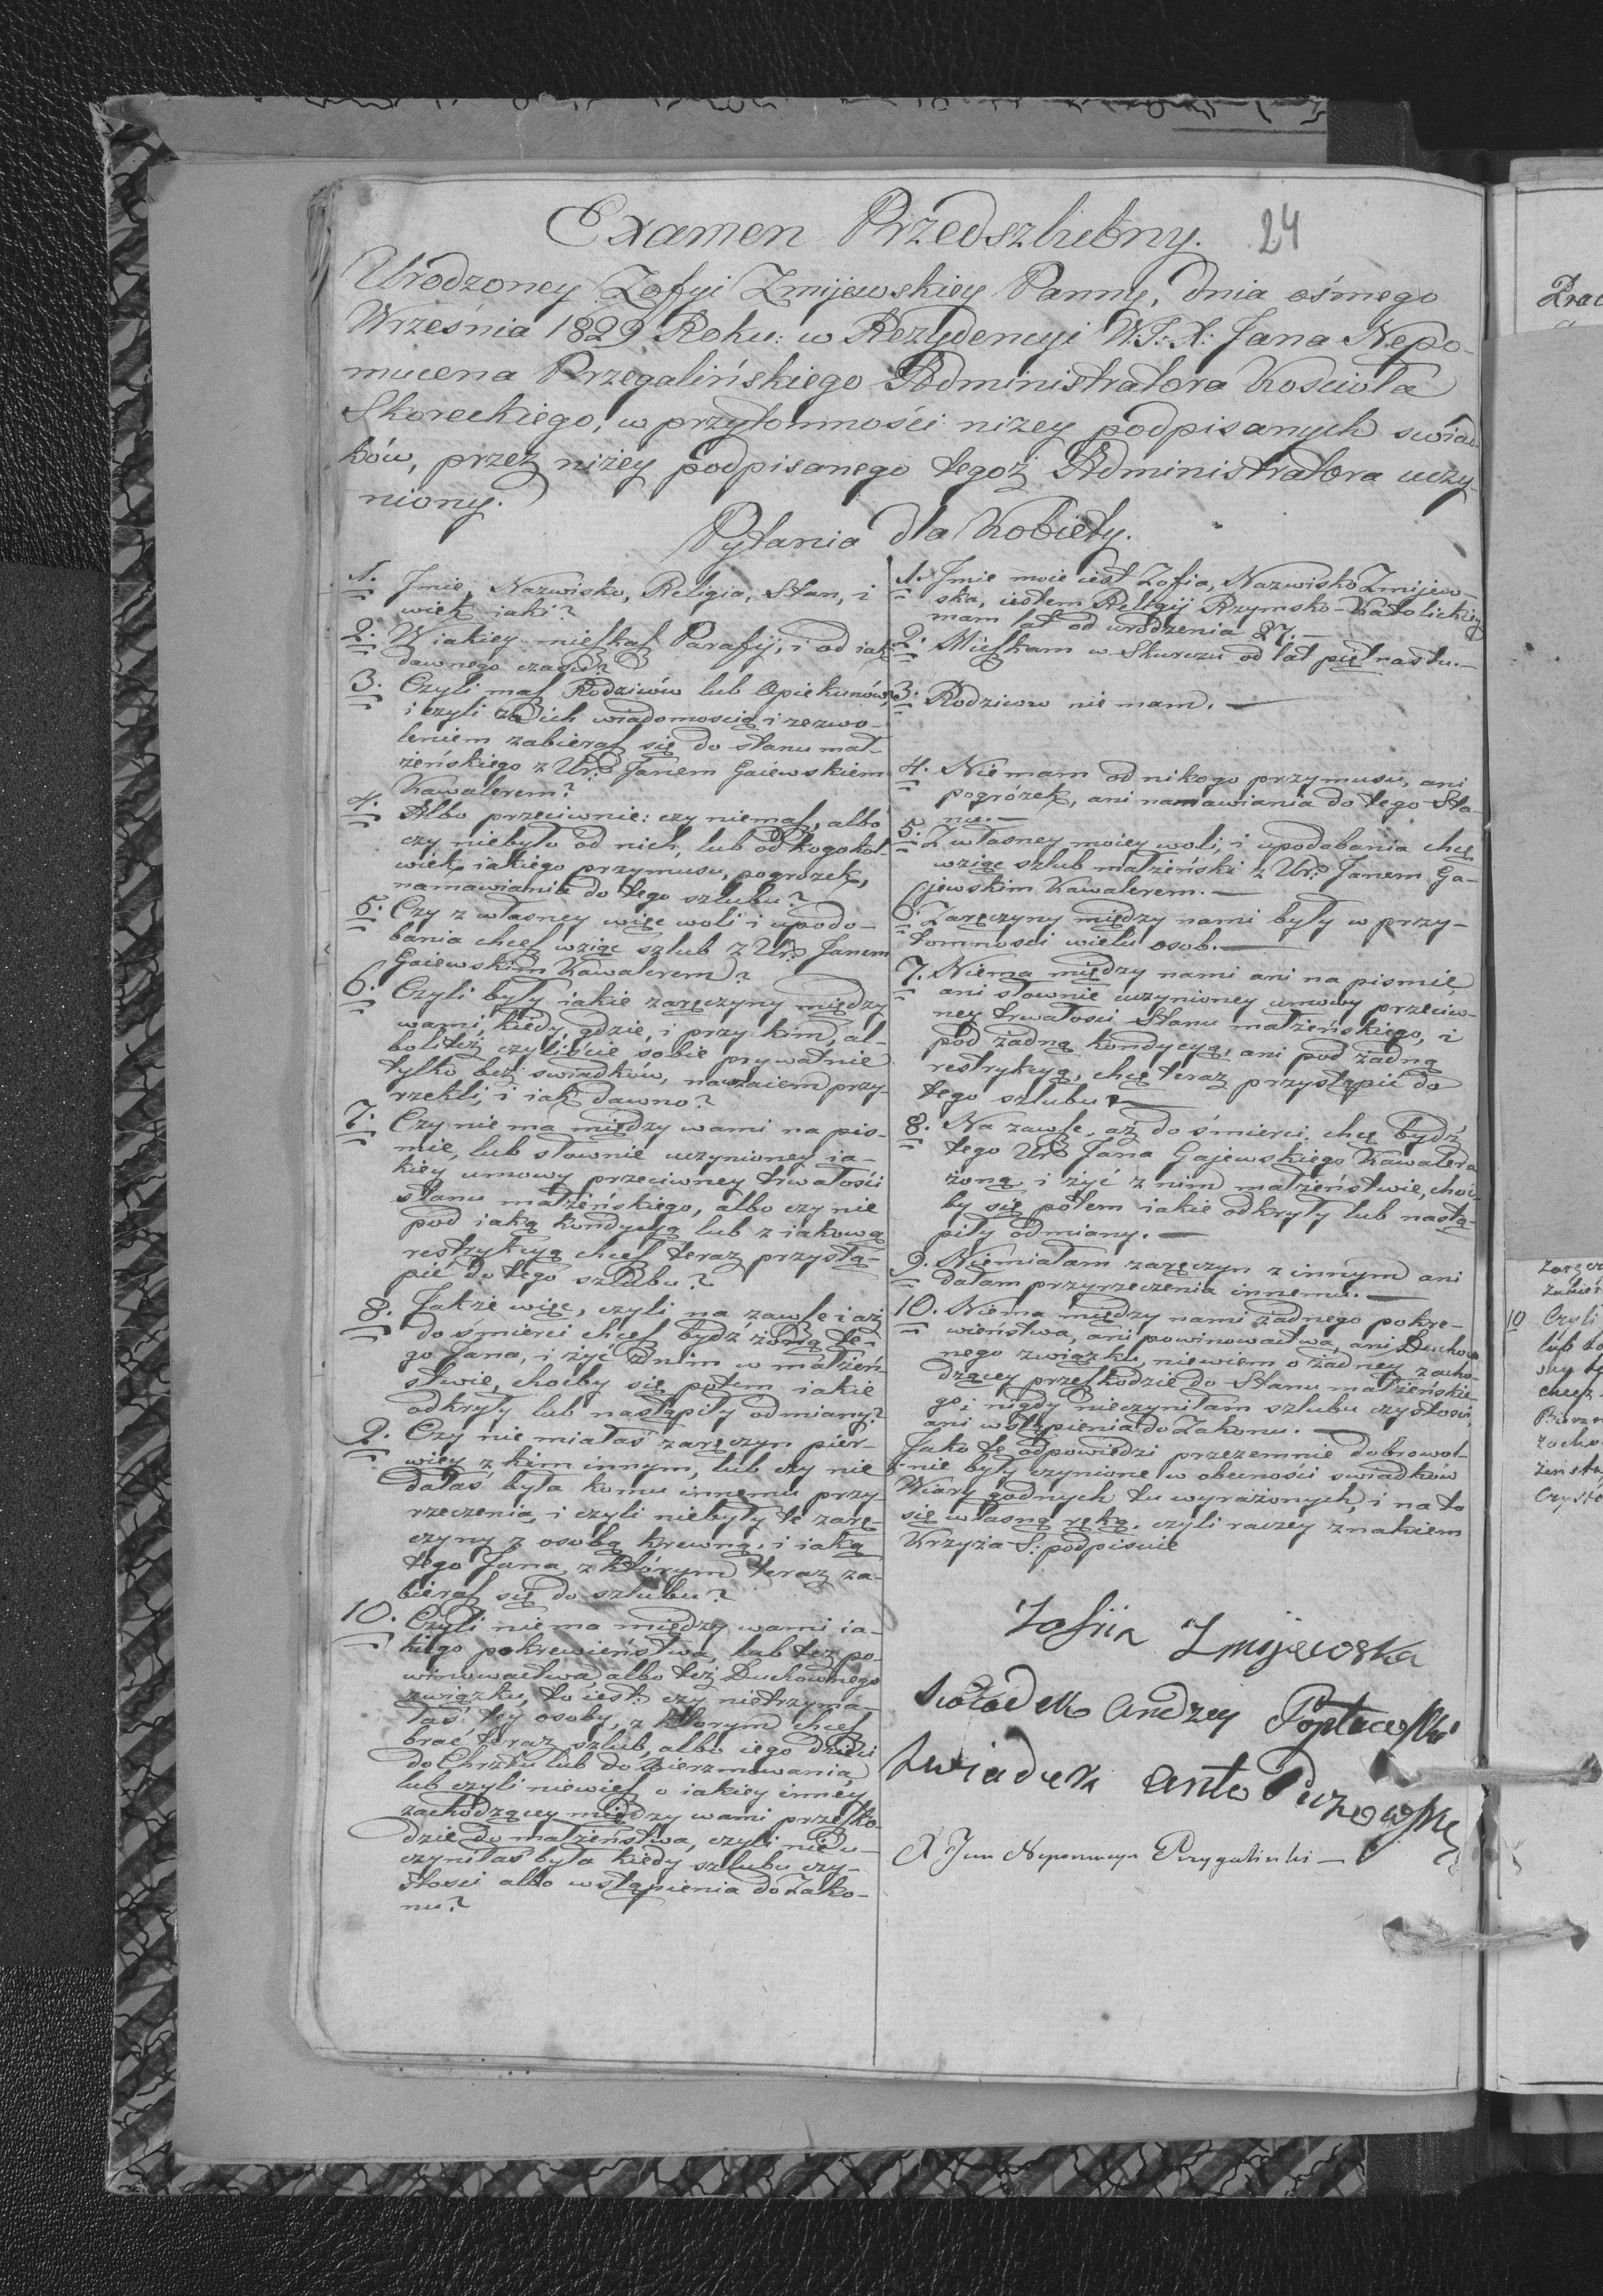 Examen Przedszlubny. 24
Urodzoney Zofyi Zmijewskiey Panny, dnia ośmego
Września 1829 Roku: w Rezydencyi W:J:X: Jana Nepo-
mucena Przegalińskiego Administratora Kościoła
Skoreckiego, w przytomności niżey podpisanych świad-
ków, przez niżey podpisanego tegoż Administratora uczy-
niony.
Pytania dla Kobiety.
1. Jmie, Nazwisko, Religia, Stan, i
wiek iaki?
2. W iakiey mieszkasz Parafii, i od iak
dawnego czasu?
3. Czyli masz Rodziców lub Opiekunów,
i czyli za ich wiadomością i zezwo-
leniem zabierasz się do stanu mał-
żeńskiego z Ur: Janem Gaiewskiem
Kawalerem?
4. Albo przeciwnie: czy niemasz, albo
czy niebyło od nich, lub od kogokol-
wiek iakiego przymusu, pogrozek,
namawiania do tego szlubu?
5. Czy z własney więc woli i upodo-
bania chcesz wziąc szlub z Ur: Janem
Gaiewskim Kawalerem?
6. Czyli były iakie zaręczyny między
wami, kiedy, gdzie, i przy kim, al-
boliteż czyliście sobie prywatnie
tylko bez swiadków, nawzaiem przy-
rzekli, i iak dawno?
7. Czy nie ma między wami na pis-
mie, lub słownie uczynioney ia-
kiey umowy przeciwney trwałości
stanu małżeńskiego, albo czy nie
pod iaką kondycyą lub z iakową
restrykcyą chcesz teraz przystą-
pić do tego szlubu?
8. Jakże więc, czyli na zawsze i aż
do śmierci chcesz bydź żoną te-
go Jana, i żyć z nim w małżeń-
stwie, choćby się potem iakie
odkryły lub nastąpiły odmiany?
9. Czy nie miałaś zaręczyn pier-
wiey z kim innym, lub czy nie
dałaś była komu innemu przy-
rzeczenia, i czyli niebyły te zarę-
czyny z osobą krewną, i iaką
tego Jana, z którym teraz za-
bierasz się do szlubu?
10. Czyli nie ma między wami ia-
kiego pokrewieństwa, lub też po-
winowactwa, albo też Duchownego
związku, to iest: czy nietrzyma-
łaś tey osoby, z ktorym chcesz
brać teraz szlub, albo iego dzieci
do Chrztu lub do Bierzmowania,
lub czyli niewiesz o iakiey inney
zachodzącey między wami przeszko-
dzie do małżeństwa, czyli nie u-
czyniłaś była kiedy szlubu czy-
stosci albo wstąpienia do Zako-
nu?
1. Jmie moie iest Zofia, Nazwisko Zmijew-
ska, iestem Religij Rzymsko-Katolickiey
mam lat od urodzenia 27.-
2. Mieszkam w Skurczu od lat piętnastu.-
3. Rodzicow nie mam.-
4. Nie mam od nikogo przymusu, ani
pogrózek, ani namawiania do tego Sta-
nu.-
5. Z własney moiey woli, i upodobania chcę
wziąc szlub małżeński z Ur: Janem Ga-
jewskim Kawalerem.-
6. Zaręczyny między nami były w przy-
tomności wielu osob.-
7. Niema między nami ani na pismie,
ani słownie uczynioney umowy przeciw-
ney trwałosci Stanu małżeńskiego, i
pod żadną kondycyą, ani pod żadną
restrykcyą, chcę teraz przystąpić do
tego szlubu.-
8. Na zawsze, aż do śmierci, chcę bydź
tego Ur: Jana Gajewskiego Kawalera
żoną i żyć z nim małżeństwie, choć-
by się potem iakie odkryły lub nastą-
piły odmiany.-
9. Niemiałam zaręczyn z innym ani
dałam przyrzeczenia innemu.-
10. Niema między nami żadnego pokre-
wieństwa, ani powinowactwa, ani Duchow-
nego związku, niewiem o żadney zacho-
dzącey przeszkodzie do Stanu małżeńskie-
go, nigdy nieczyniłam szlubu czystosci,
ani wstąpienia do Zakonu.-
Jako te odpowiedzi przezemnie dobrowol-
nie były czynione w obecności swiadków
Wiary godnych tu wyrażonych, i na to
się własną ręką, czyli raczey znakiem
Krzyża S: podpisuie
Zofiia Zmijewska
Swiadek Andrzey
Swiadek
X Jan Nepomucyn Przygaliński-
10 Czyli